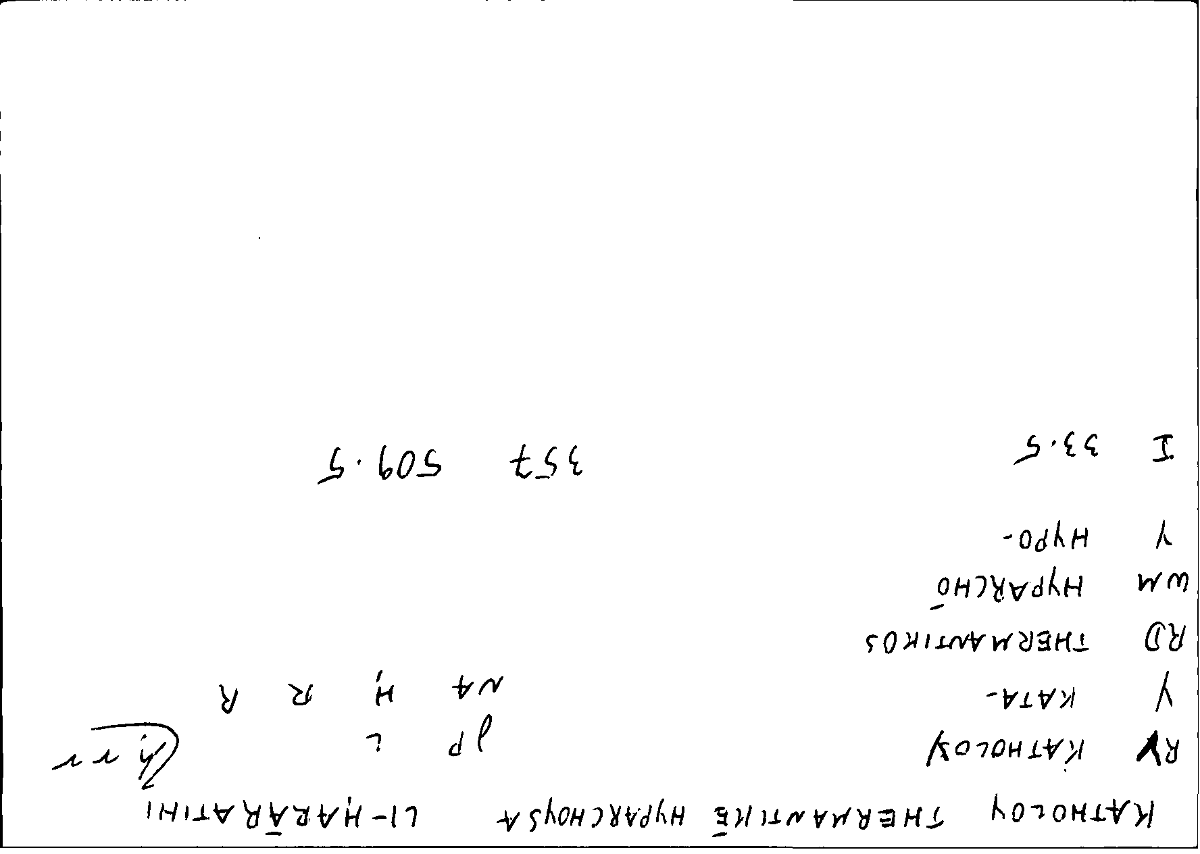 KATHOLOY THERMANTIKĒ HYPARCHOYSA LI-ḤARĀRATIHI
RY KATHOLOY JP L ḥrr
Y KATA- NA Ḥ R R
RD THERMANTIKOS
WM HYPARCHŌ
Y HYPO-
I 33.5 357 509.5